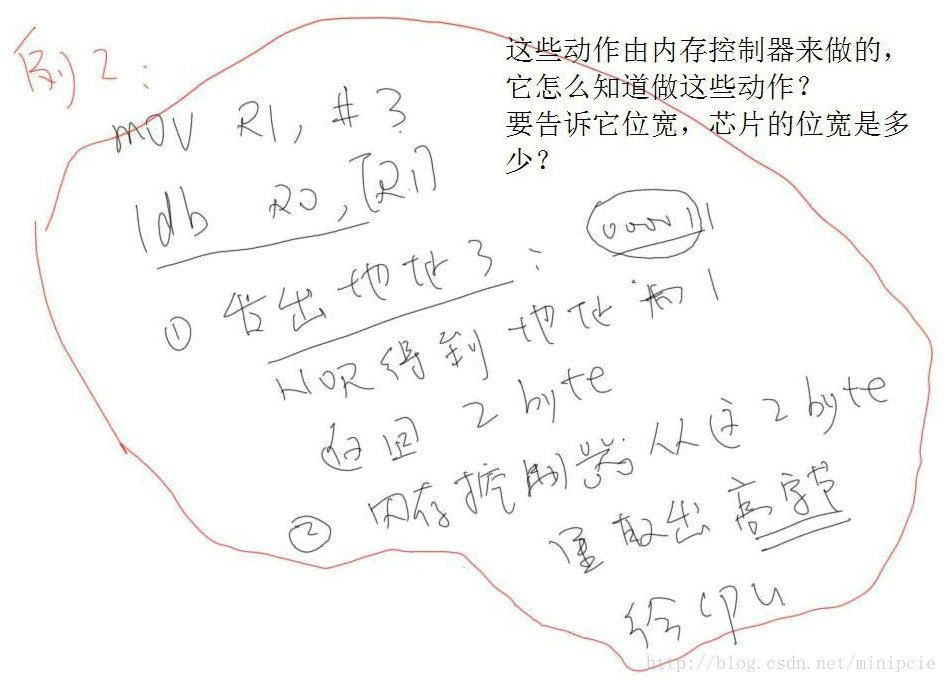 例2:
这些动作由内存控制器来做的，
它怎么知道做这些动作？
要告诉它位宽，芯片的位宽是多
少？
mov R1, #3
ldb R0, [R1]
① 发出地址3: 000011
NOR得到地址为1
返回 2 byte
② 内存控制器从这2byte
里取出高字节
给CPU
http://blog.csdn.net/minipcie